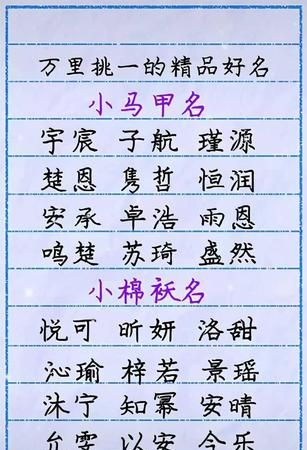 万里挑一的精品好名
小马甲名
宇宸 子航 瑾源
楚恩 隽哲 恒润
安承 卓浩 雨恩
鸣楚 苏琦 盛然
小棉袄名
悦可 昕妍 洛甜
沁瑜 梓若 景瑶
沐宁 知幂 安晴
允雯 以安 今乐